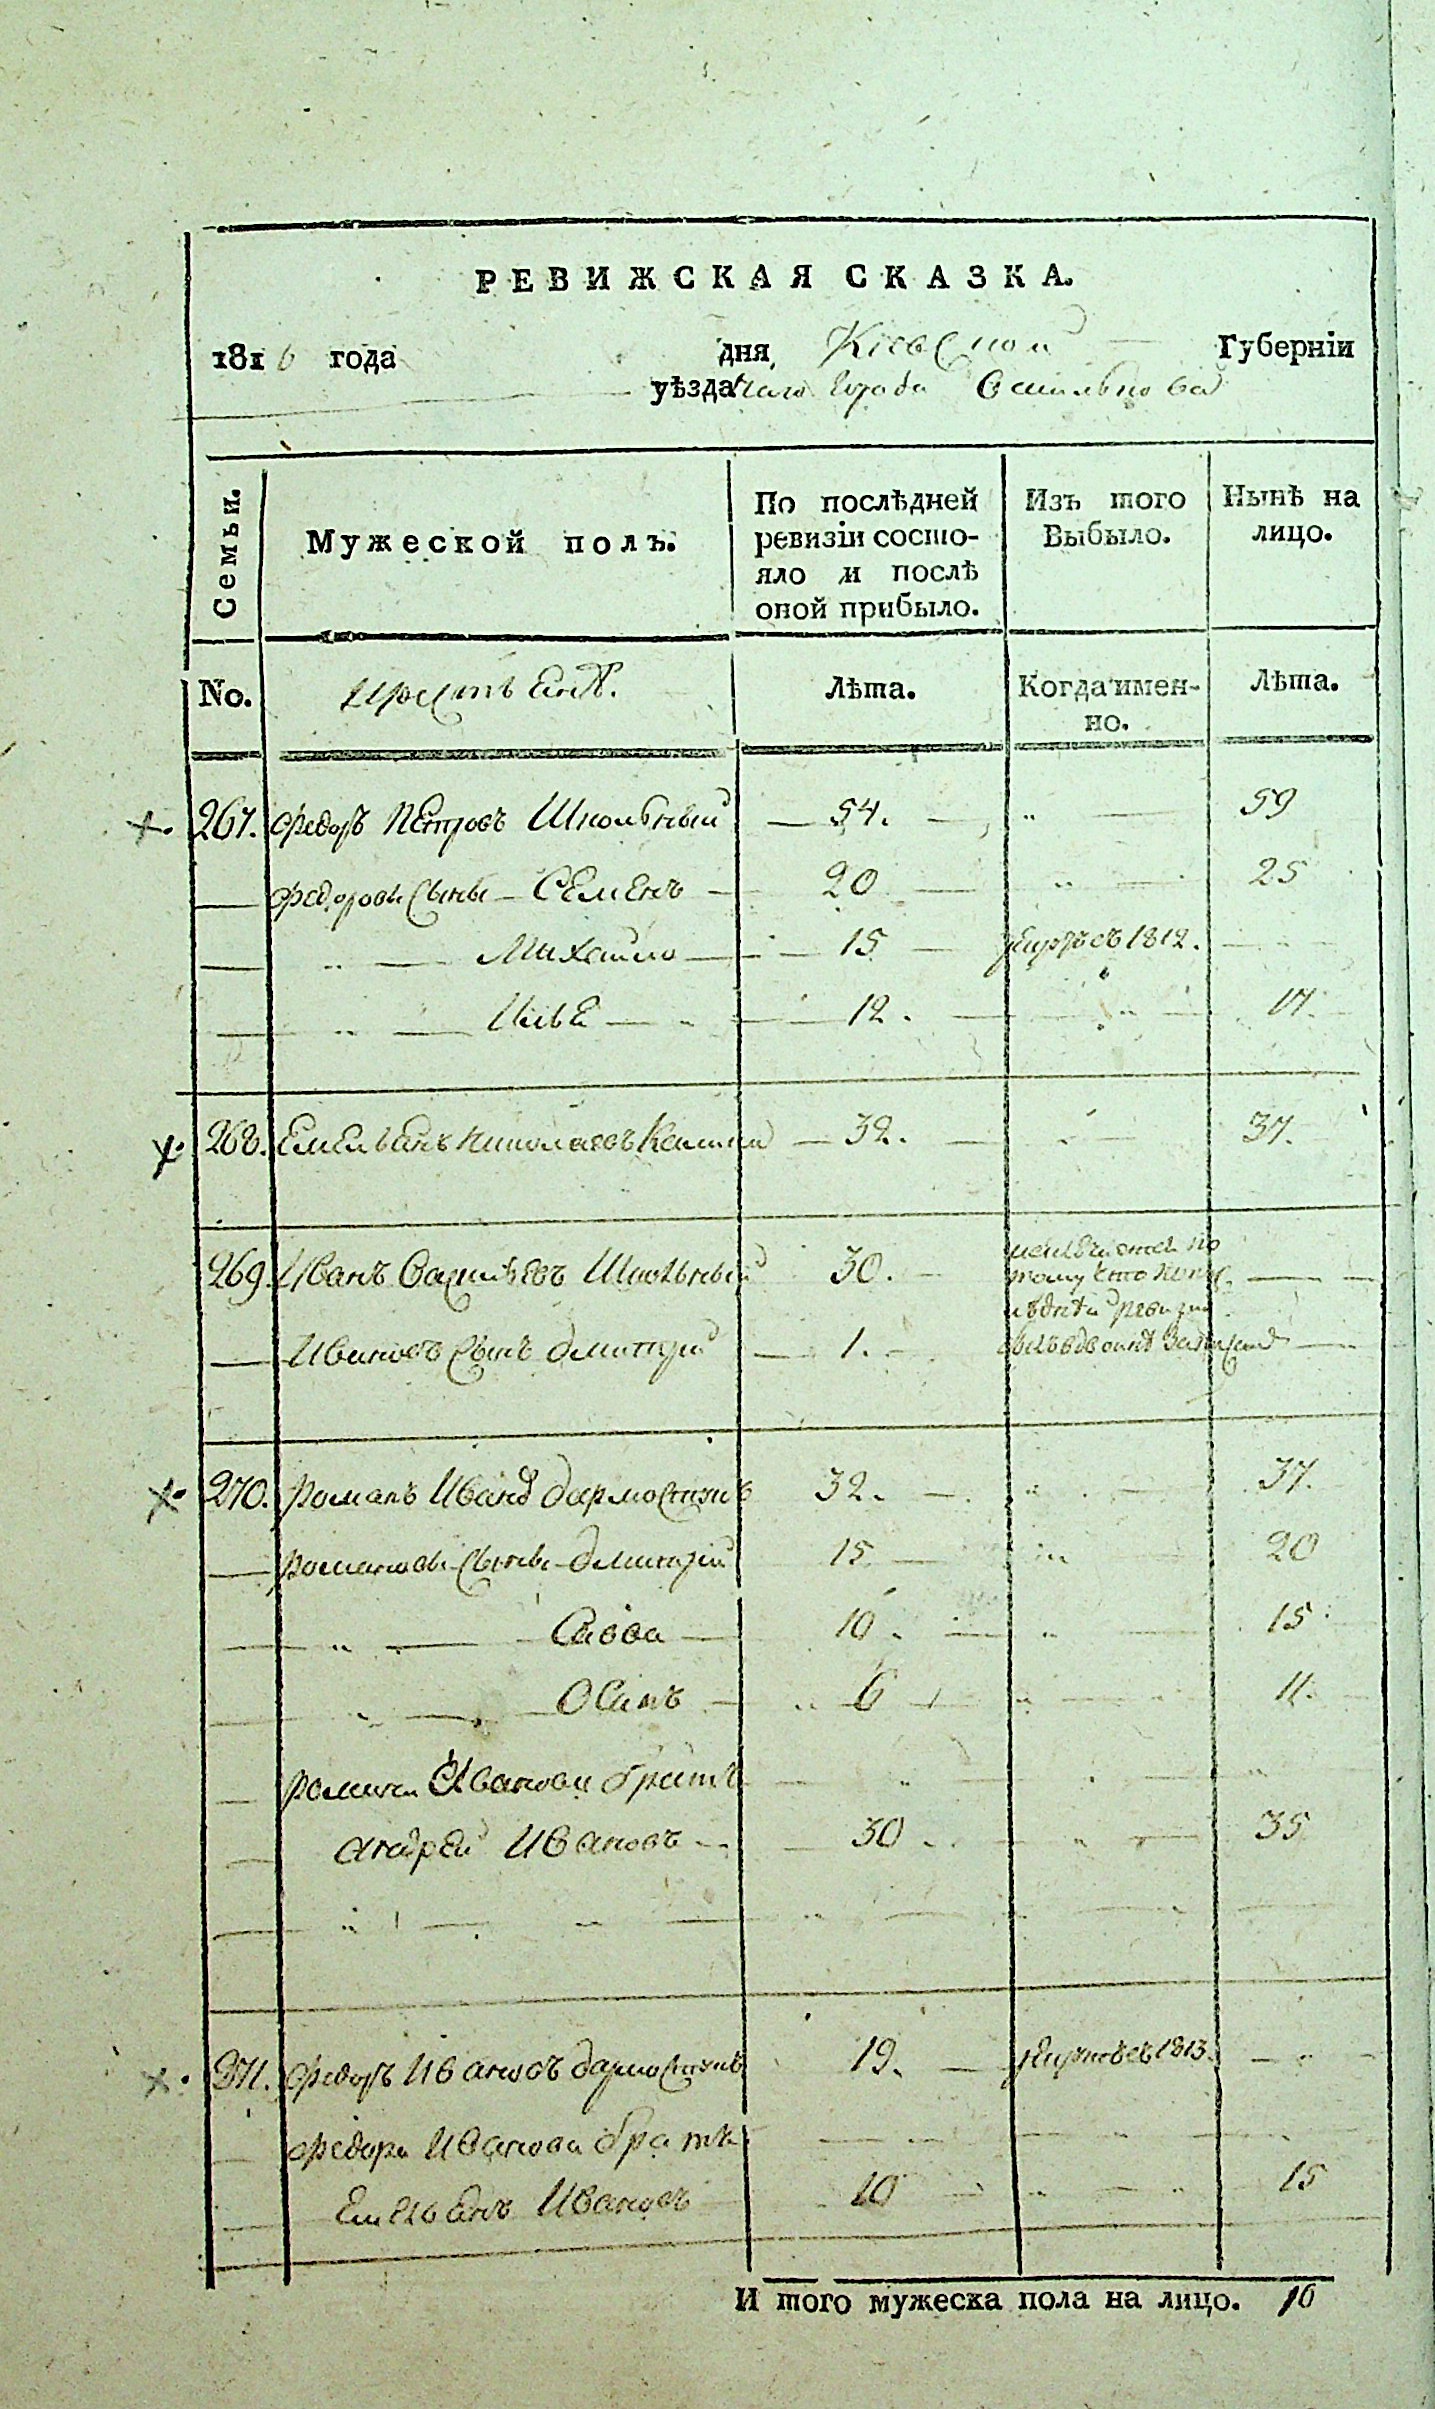 РЕВИЖСКАЯ СКАЗКА.
1816 года дня, Кіевской Губерніи
уѣзда города Василькова
Семьи. Мужеской полъ. По послѣдней ревизіи состо- яло и послѣ оной прибыло. Изъ того Выбыло. Нынѣ на лицо.
No. Лѣта. Когда имен- но. Лѣта.
267. Федоръ Петровъ Школьный 54. 59
Федоровы сыны Семенъ 20 25
Михайло 15 умре въ 1812.
Илья 12. 17.
268. Емельянъ Николаевъ 32. 37.
269. Иванъ Васильевъ Школьный 30.
Ивановъ сынъ Дмитрий 1.
270. Романъ Ивановъ 32. 37.
Романовы сыны Дмитрій 15 20
Савва 10. 15
Осипъ 6 11.
Романа Иванова братъ
Андрей Ивановъ 30 35
271. Федоръ Ивановъ 19. 1813.
Федора Иванова братъ
Емельянъ Ивановъ 10 15
И того мужеска пола на лицо. 10